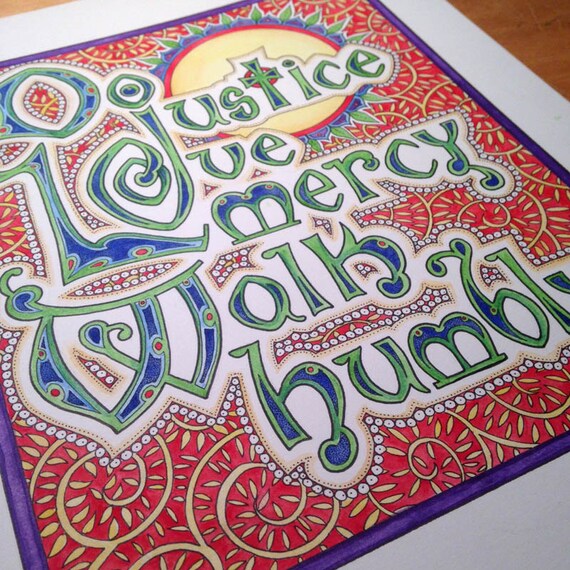 Do Justice
Love
mercy
Walk
humbl